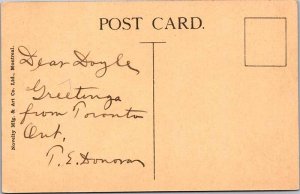 POST CARD.
Novelty Mfg. & Art Co. Ltd., Montreal.
Dear Doyle
Greetings
from Toronto
Ont.
T. E. Donovan